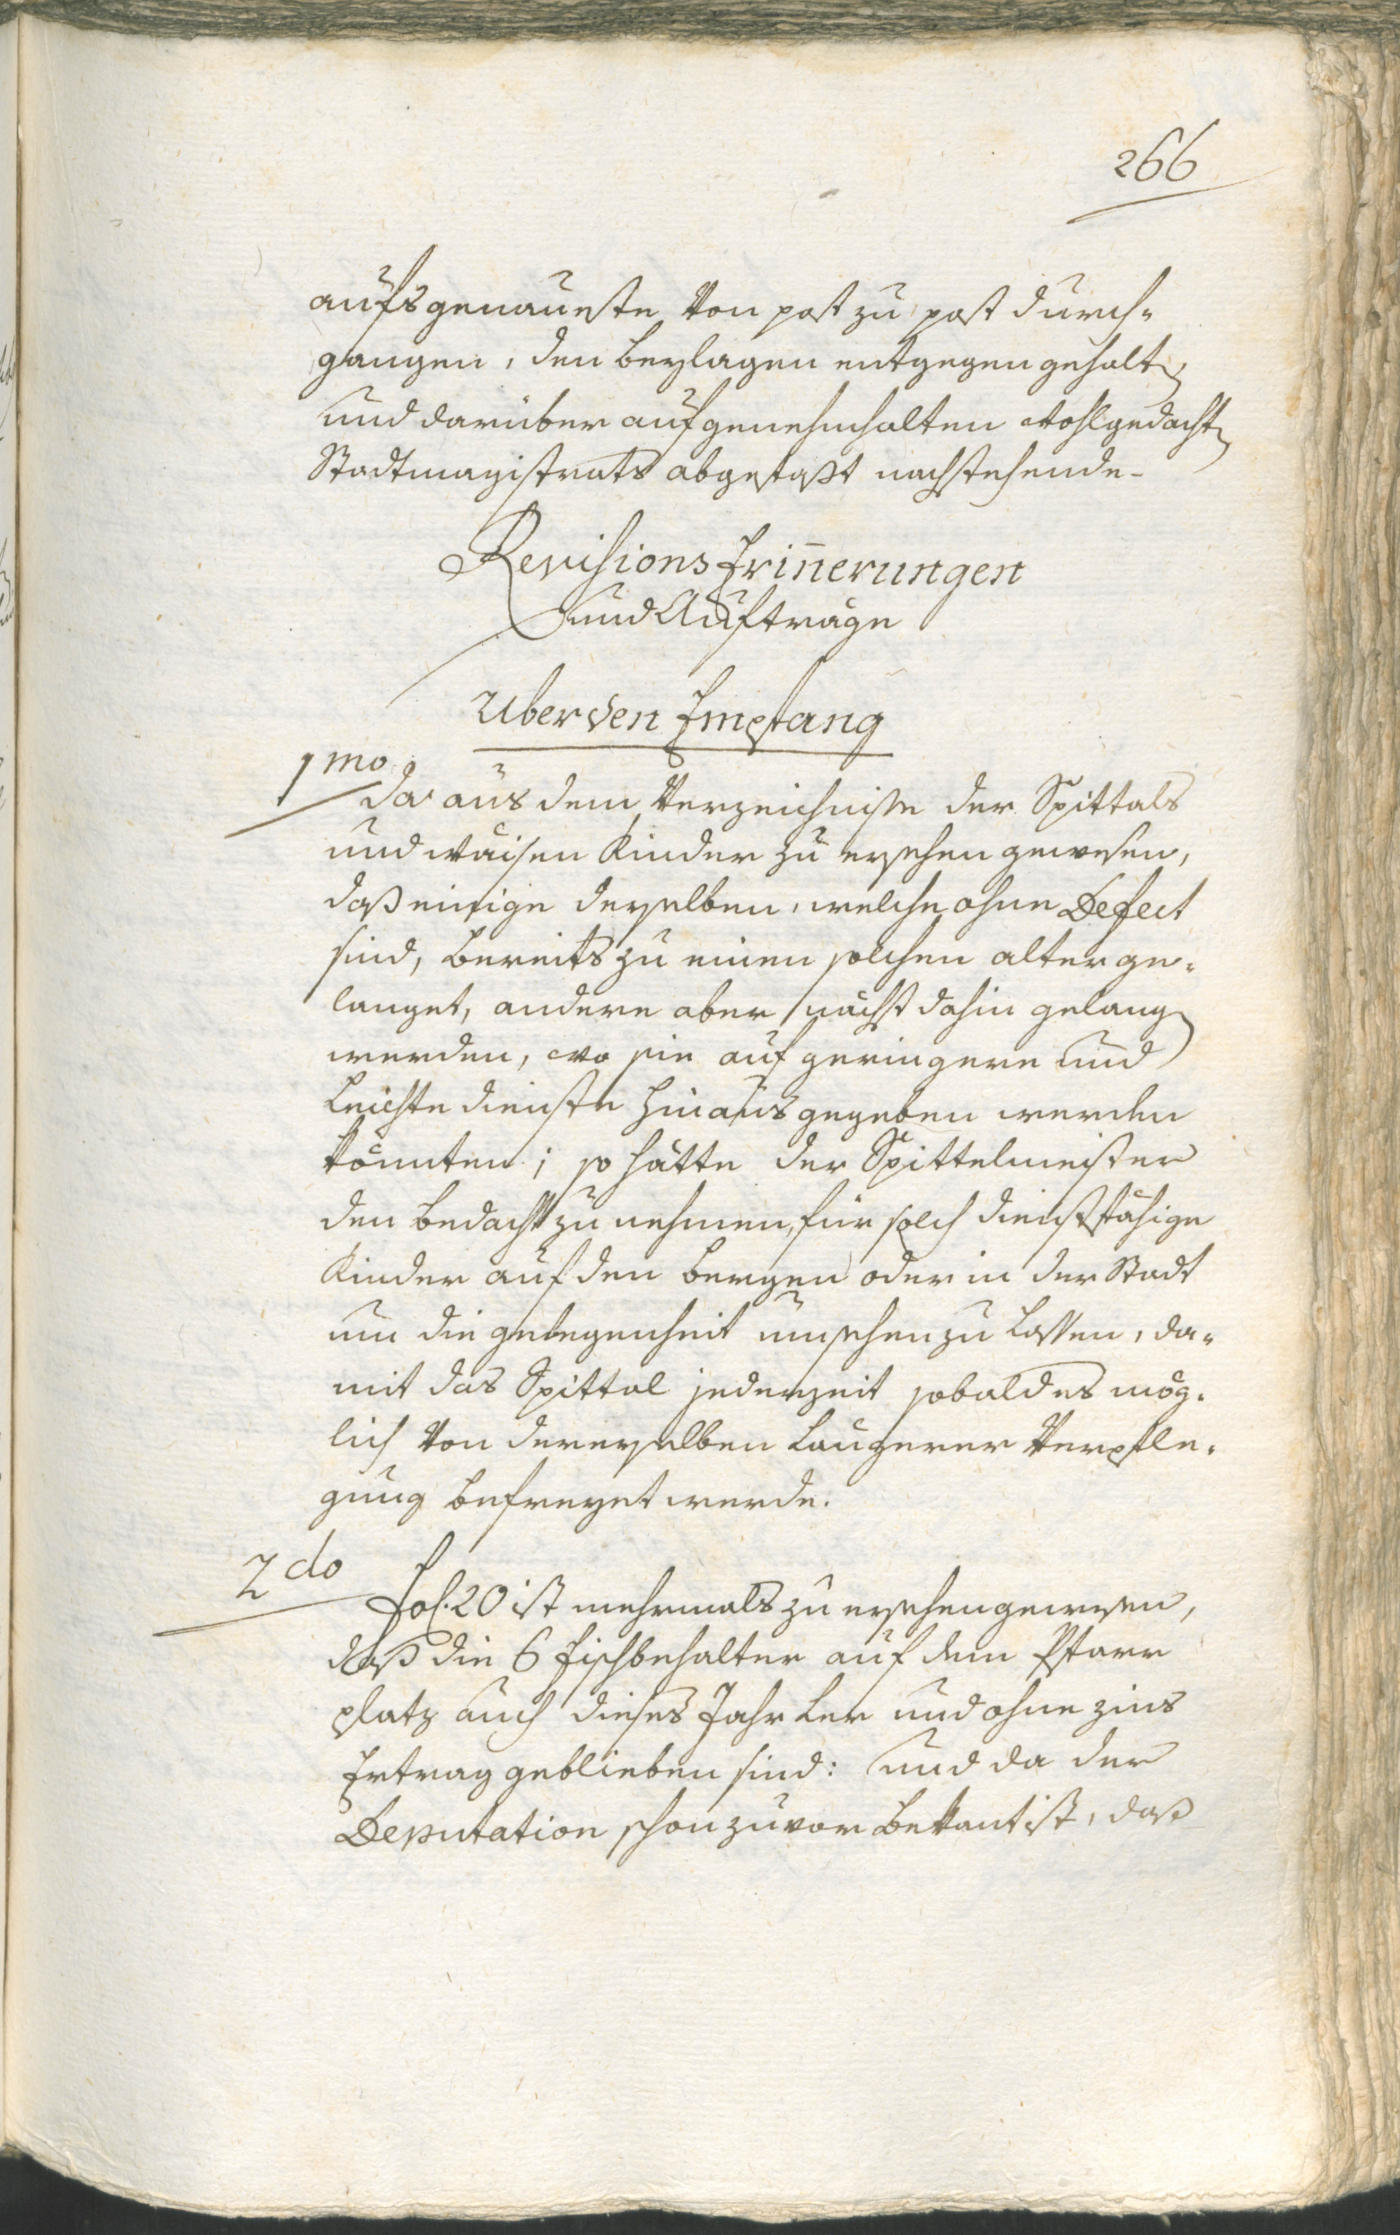 266
aufs genaueste von post zu post durch-
gangen, den beylagen entgegen gehalten
und darüber auf genehmhalten wohlgedachten
Stadtmagistrats abgefaßt nachstehende-
Revisions Erinnerungen
und Aufträge
Uber den Empfang
1mo.
da aus dem Verzeichniße der Spittals
und waisen Kinder zu ersehen gewesen,
daß einige derselben, welche ohne Defect
sind, bereits zu einen solchen alter ge-
langet, andere aber nächst dahin gelangen
werden, wo sie auf geringere und
leichte dienste hinaus gegeben werden
könnten; so hätte der Spittelmeister
den bedacht zu nehmen, für solch dienstfähige
Kinder auf den bergen oder in der Stadt
um die gelegenheit umsehen zu lassen, da-
mit das Spittal jederzeit sobald es mög-
lich von derenselben längerer Verpfle-
gung befreyet werde.
2do
Fol. 20 ist mehrmals zu ersehen gewesen,
daß die 6 fischbehalter auf dem Pfarr
platz auch dieses Jahr ler und ohne zins
Ertrag geblieben sind: und da der
Deputation schon zuvor bekant ist, daß